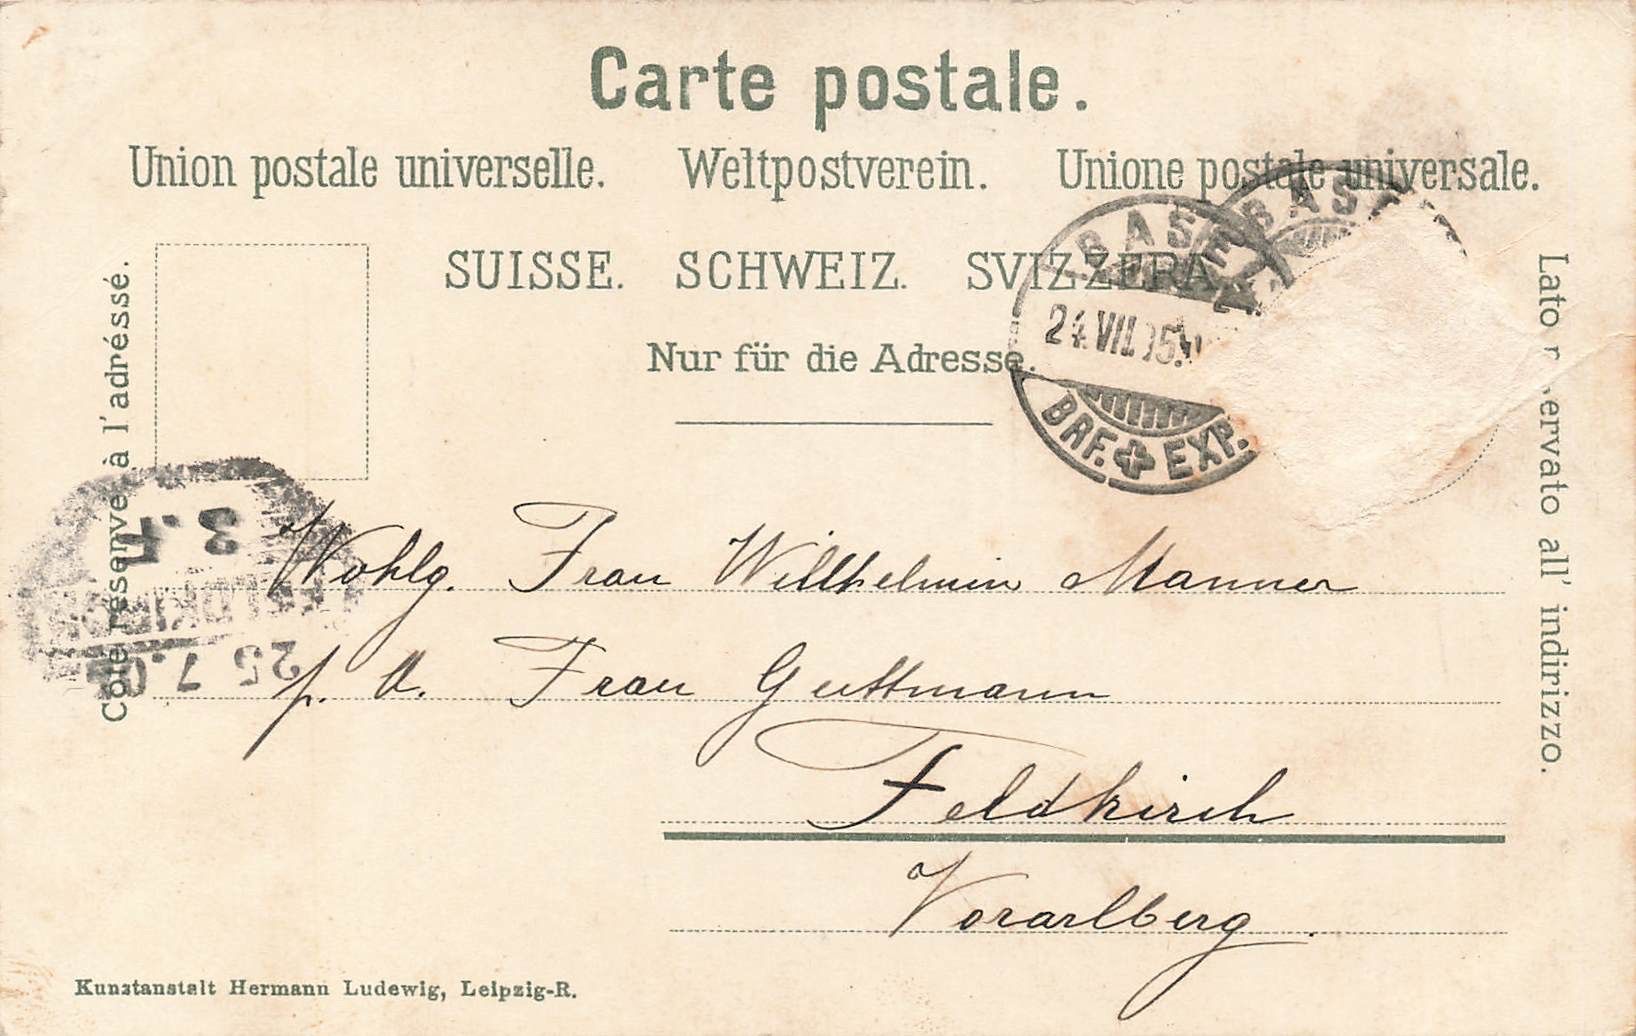 Carte postale.
Union postale universelle. Weltpostverein. Unione postale universale.
SUISSE. SCHWEIZ. SVIZZERA.
Nur für die Adresse.
Côté réservé à l'adréssé.
Lato r ervato all' indirizzo.
BASEL
24.VII.05.
BRF. EXP.
BAS
3.
FELDKIRCH
25 7.0
Wohlg. Frau Willhelmin Manner
p. A. Frau Guttmann
Feldkirch
Vorarlberg.
Kunstanstalt Hermann Ludewig, Leipzig-R.